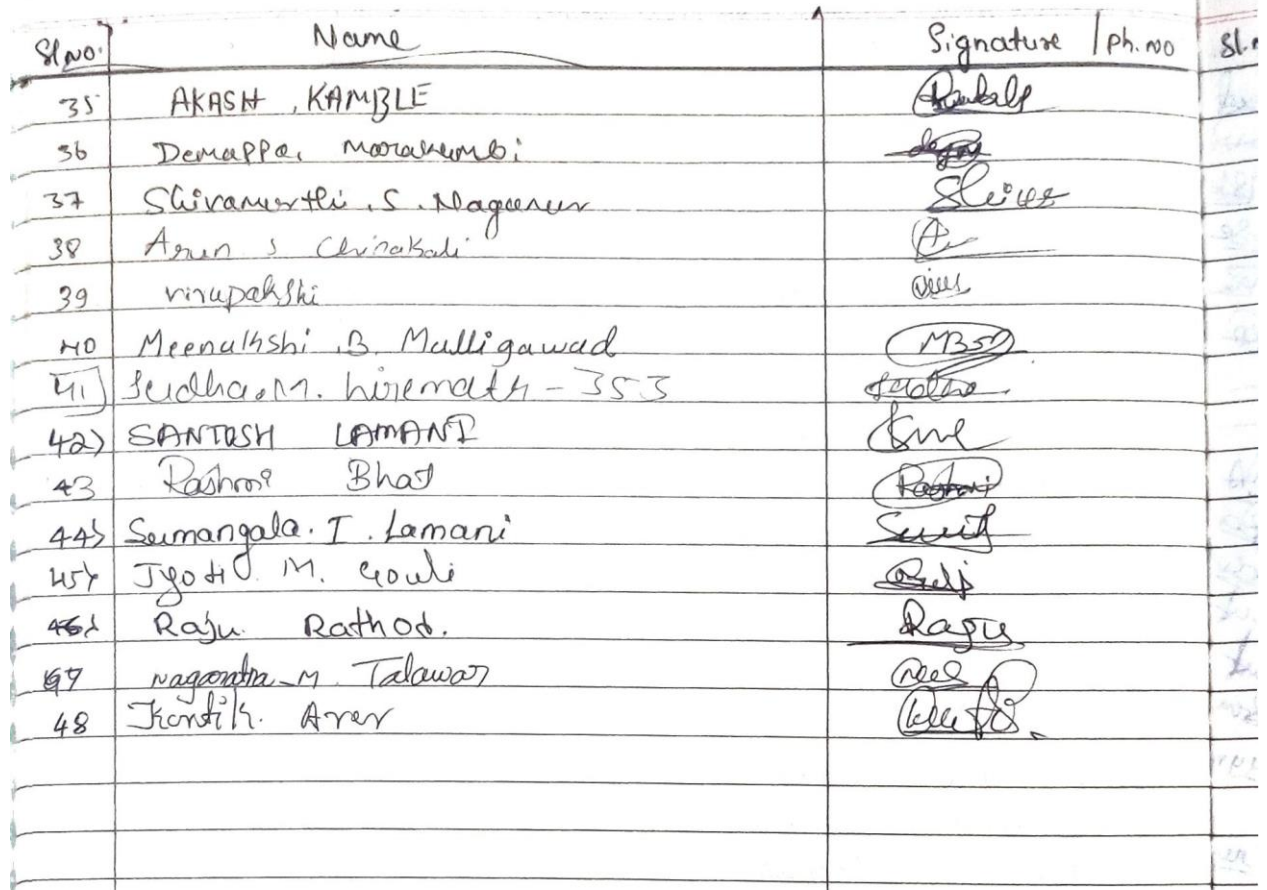 Sl No. Name Signature / Ph. no Sl.
35 AKASH . KAMBLE
36 Demappa. Marakumbi
37 Shivamurthi . S . Naganur Shive
38 Arun S Chinakali A
39 virupakshi
40 Meenalkshi .B. Mulligawad
41 Sudha.M. hiremath - 353
42) SANTOSH LAMANI
43 Rashmi Bhat Rashmi
44) Sumangala. I . Lamani
45) Jyoti . M. Gouli
46) Raju Rathod. Raju
47 M. Talawar
48 Kartik. Arer